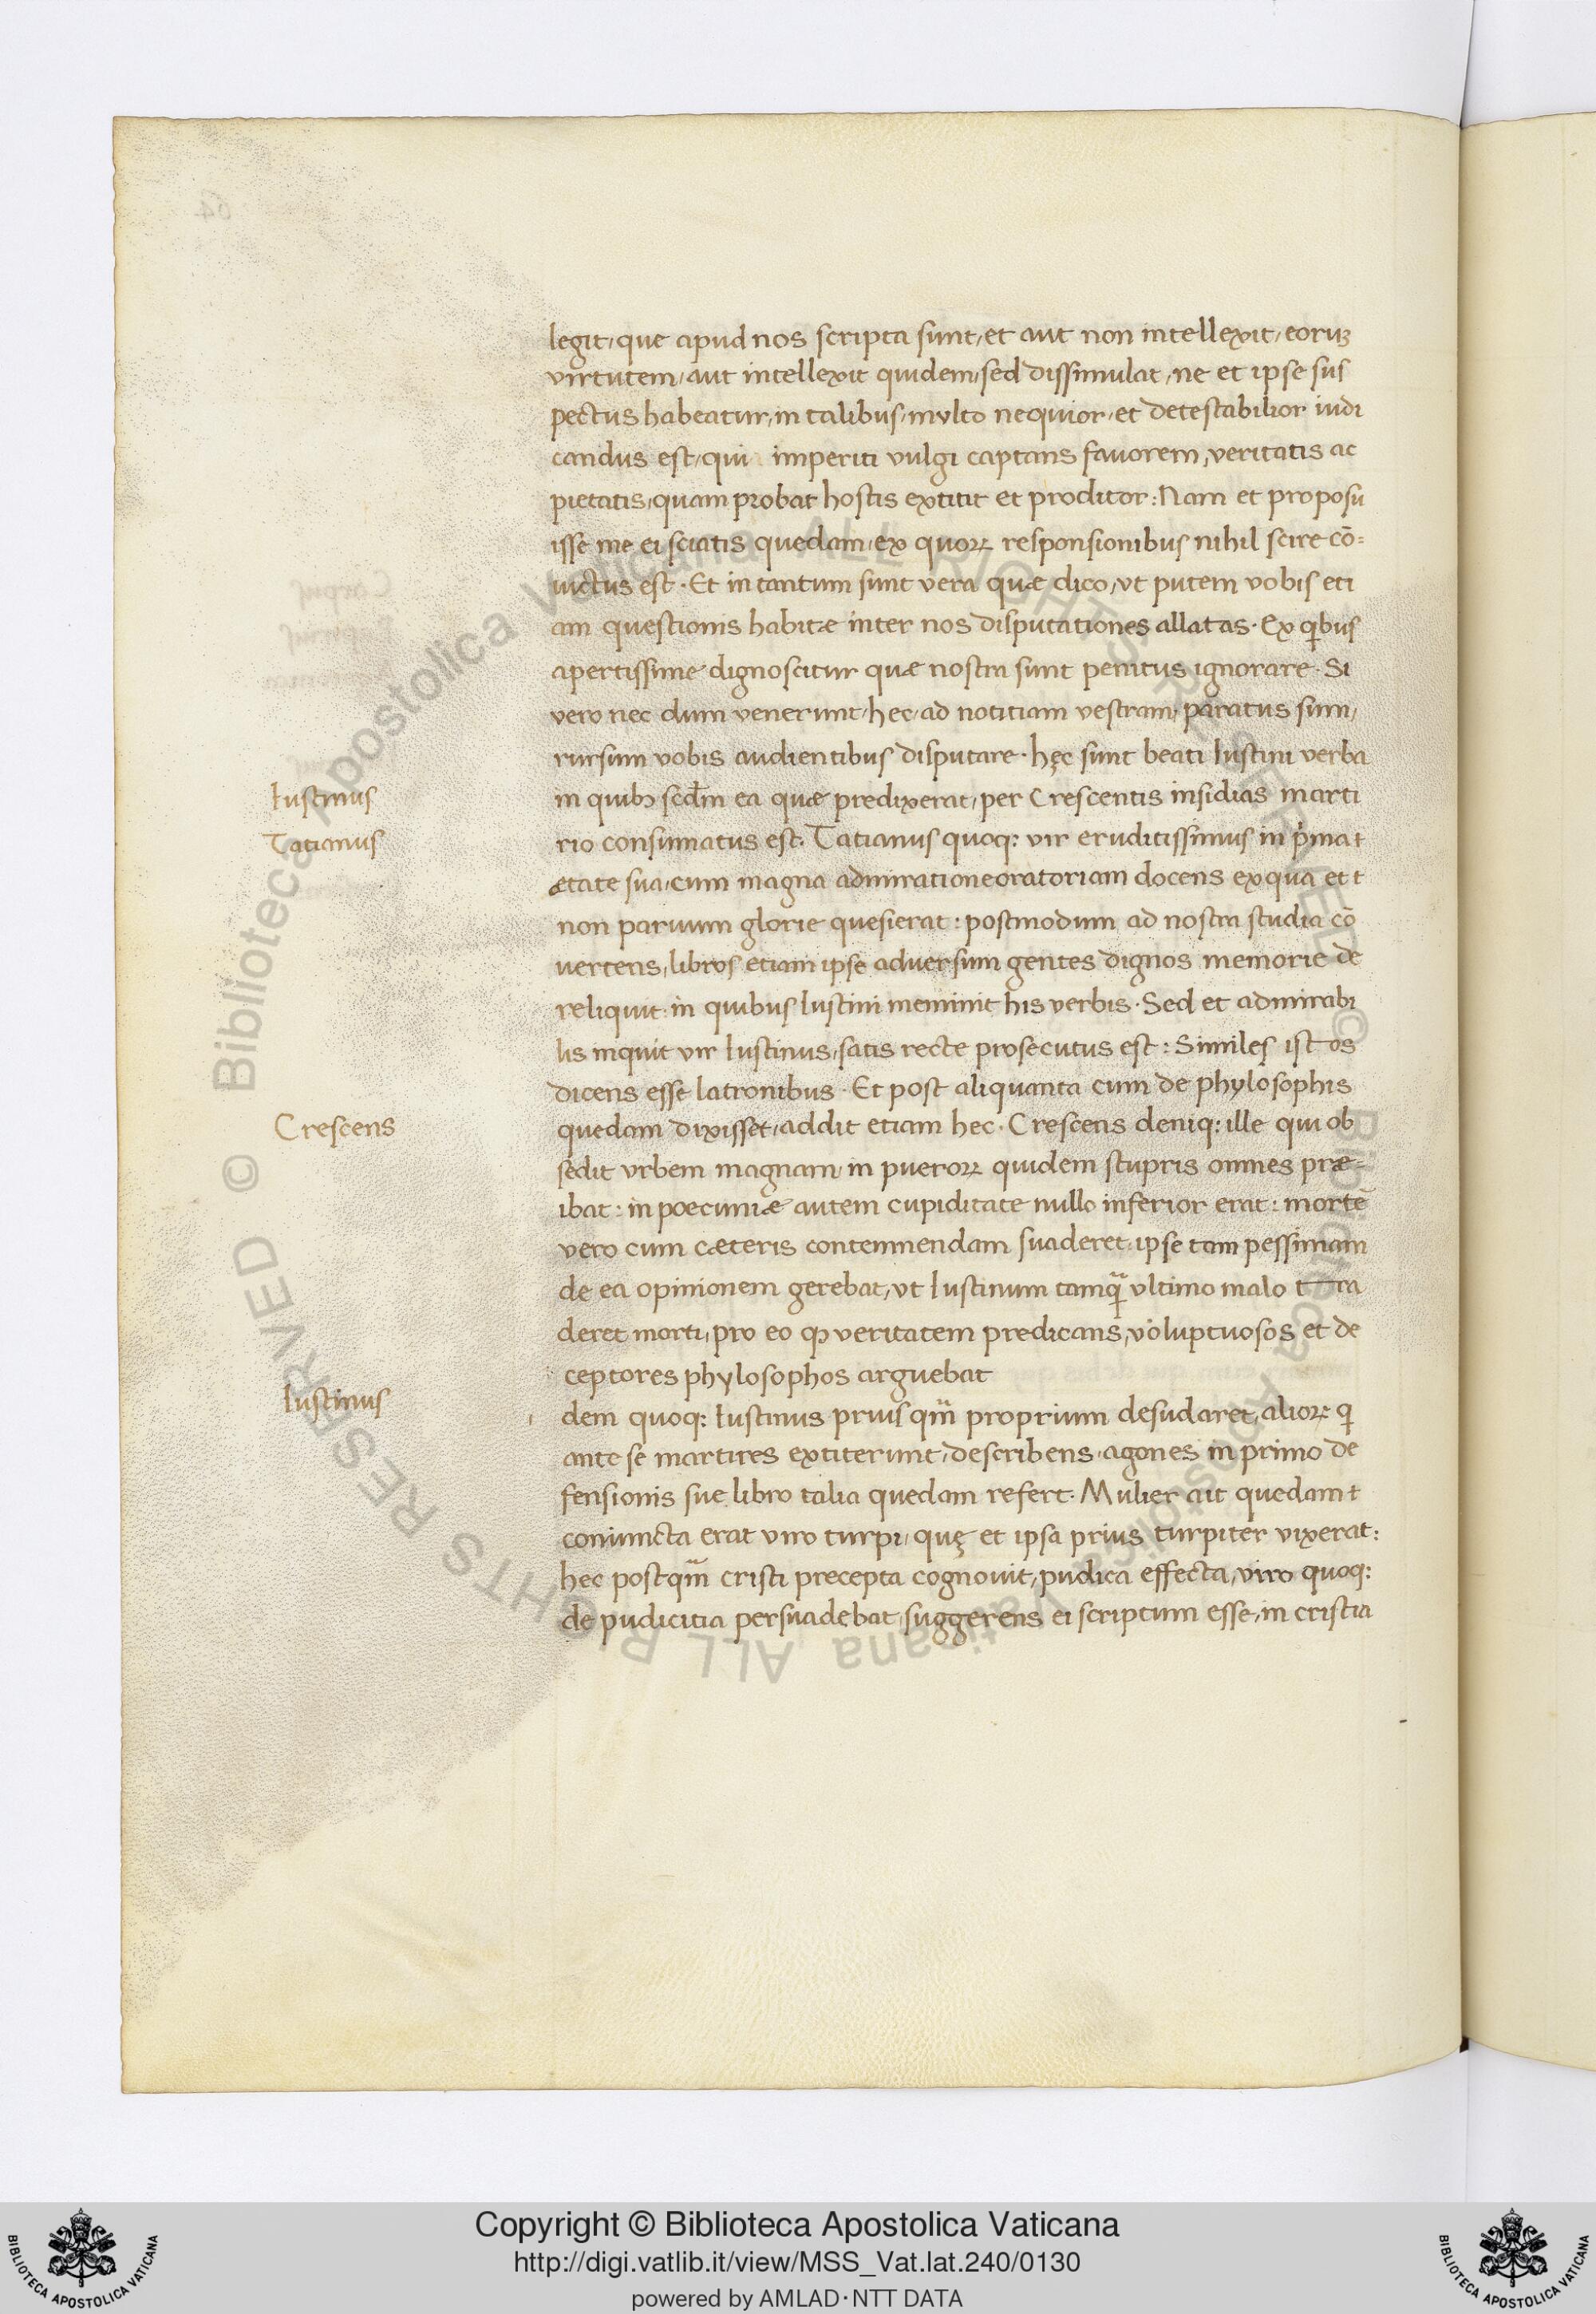 legit, que apud nos scripta sunt, et aut non intellexit, eorum
virtutem, aut intellexit quidem, sed dissimulat, ne et ipse sus
pectus habeatur, in talibus, multo nequior, et detestabilior iudi
candus est, qui imperiti vulgi captans favorem, veritatis ac
pietatis, quam probat hostis extitit et proditor: Nam et proposu
isse me ei sciatis quedam, ex quoꝝ responsionibus nihil scire cō-
uictus est. Et in tantum sunt vera quæ dico, vt putem vobis eti
am questionis habitæ inter nos disputationes allatas. Ex qibus
apertissime dignoscitur quæ nostra sunt penitus ignorare. Si
vero nec dum venerunt, hec, ad notitiam vestram, paratus sum,
rursum vobis audientibus disputare. hęc sunt beati Iustini verba
Iustinus
in quibꝫ scdm̄ ea quæ predixerat, per Crescentis insidias marti
Tatianus
rio consumatus est. Tatianus quoq: vir eruditissimus in pͥma t
ætate sua, cum magna admiratione oratoriam docens ex qua et t
non parvum glorie quesierat: postmodum ad nostra studia cō
vertens, libros etiam ipse adversum gentes dignos memorie de
reliquit. in quibus Iustini meminit his verbis. Sed et admirabi
lis inquit vir Iustinus, satis recte prosecutus est: Similes istos
dicens esse latronibus. Et post aliquanta cum de phylosophis
Crescens
quedam dixisset, addit etiam hec. Crescens deniq: ille qui ob
sedit urbem magnam in pueroꝝ quidem stupris omnes præ-
ibat: in poecuniæ autem cupiditate nullo inferior erat: mortē
vero cum cæteris contemnendam suaderet, ipse tam pessimam
de ea opinionem gerebat, ut Iustinum tamqᷓ ultimo malo tra
deret morti, pro eo ꝙ veritatem predicans, voluptuosos et de
ceptores phylosophos arguebat
Iustinus
i dem quoq: Iustinus prius qm̄ proprium desudaret, alioꝝ qi
ante se martires extiterunt, describens, agones in primo de
fensionis sue libro talia quedam refert. Mulier ait quedam t
coniuncta erat viro turpi, quę et ipsa prius turpiter vixerat:
hec postqm̄ cristi precepta cognovit, pudica effecta, viro quoq:
de pudicitia persuadebat, suggerens ei scriptum esse, in cristia
© Biblioteca Apostolica Vaticana ALL RIGHTS RESERVED © Biblioteca Apostolica Vaticana ALL RIGHTS RESERVED
Copyright © Biblioteca Apostolica Vaticana
http://digi.vatlib.it/view/MSS_Vat.lat.240/0130
powered by AMLAD·NTT DATA
BIBLIOTECA APOSTOLICA VATICANA
BIBLIOTECA APOSTOLICA VATICANA